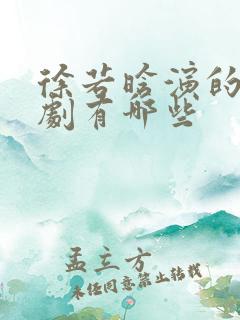 徐若晗演的
劇有哪些
孟立方
未经同意禁止转载